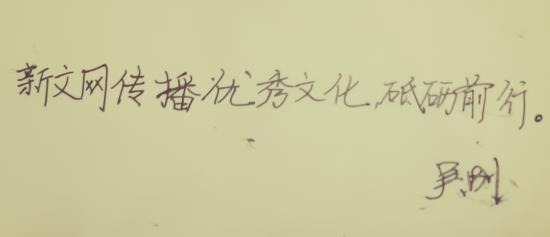 新文网传播优秀文化,砥砺前行。